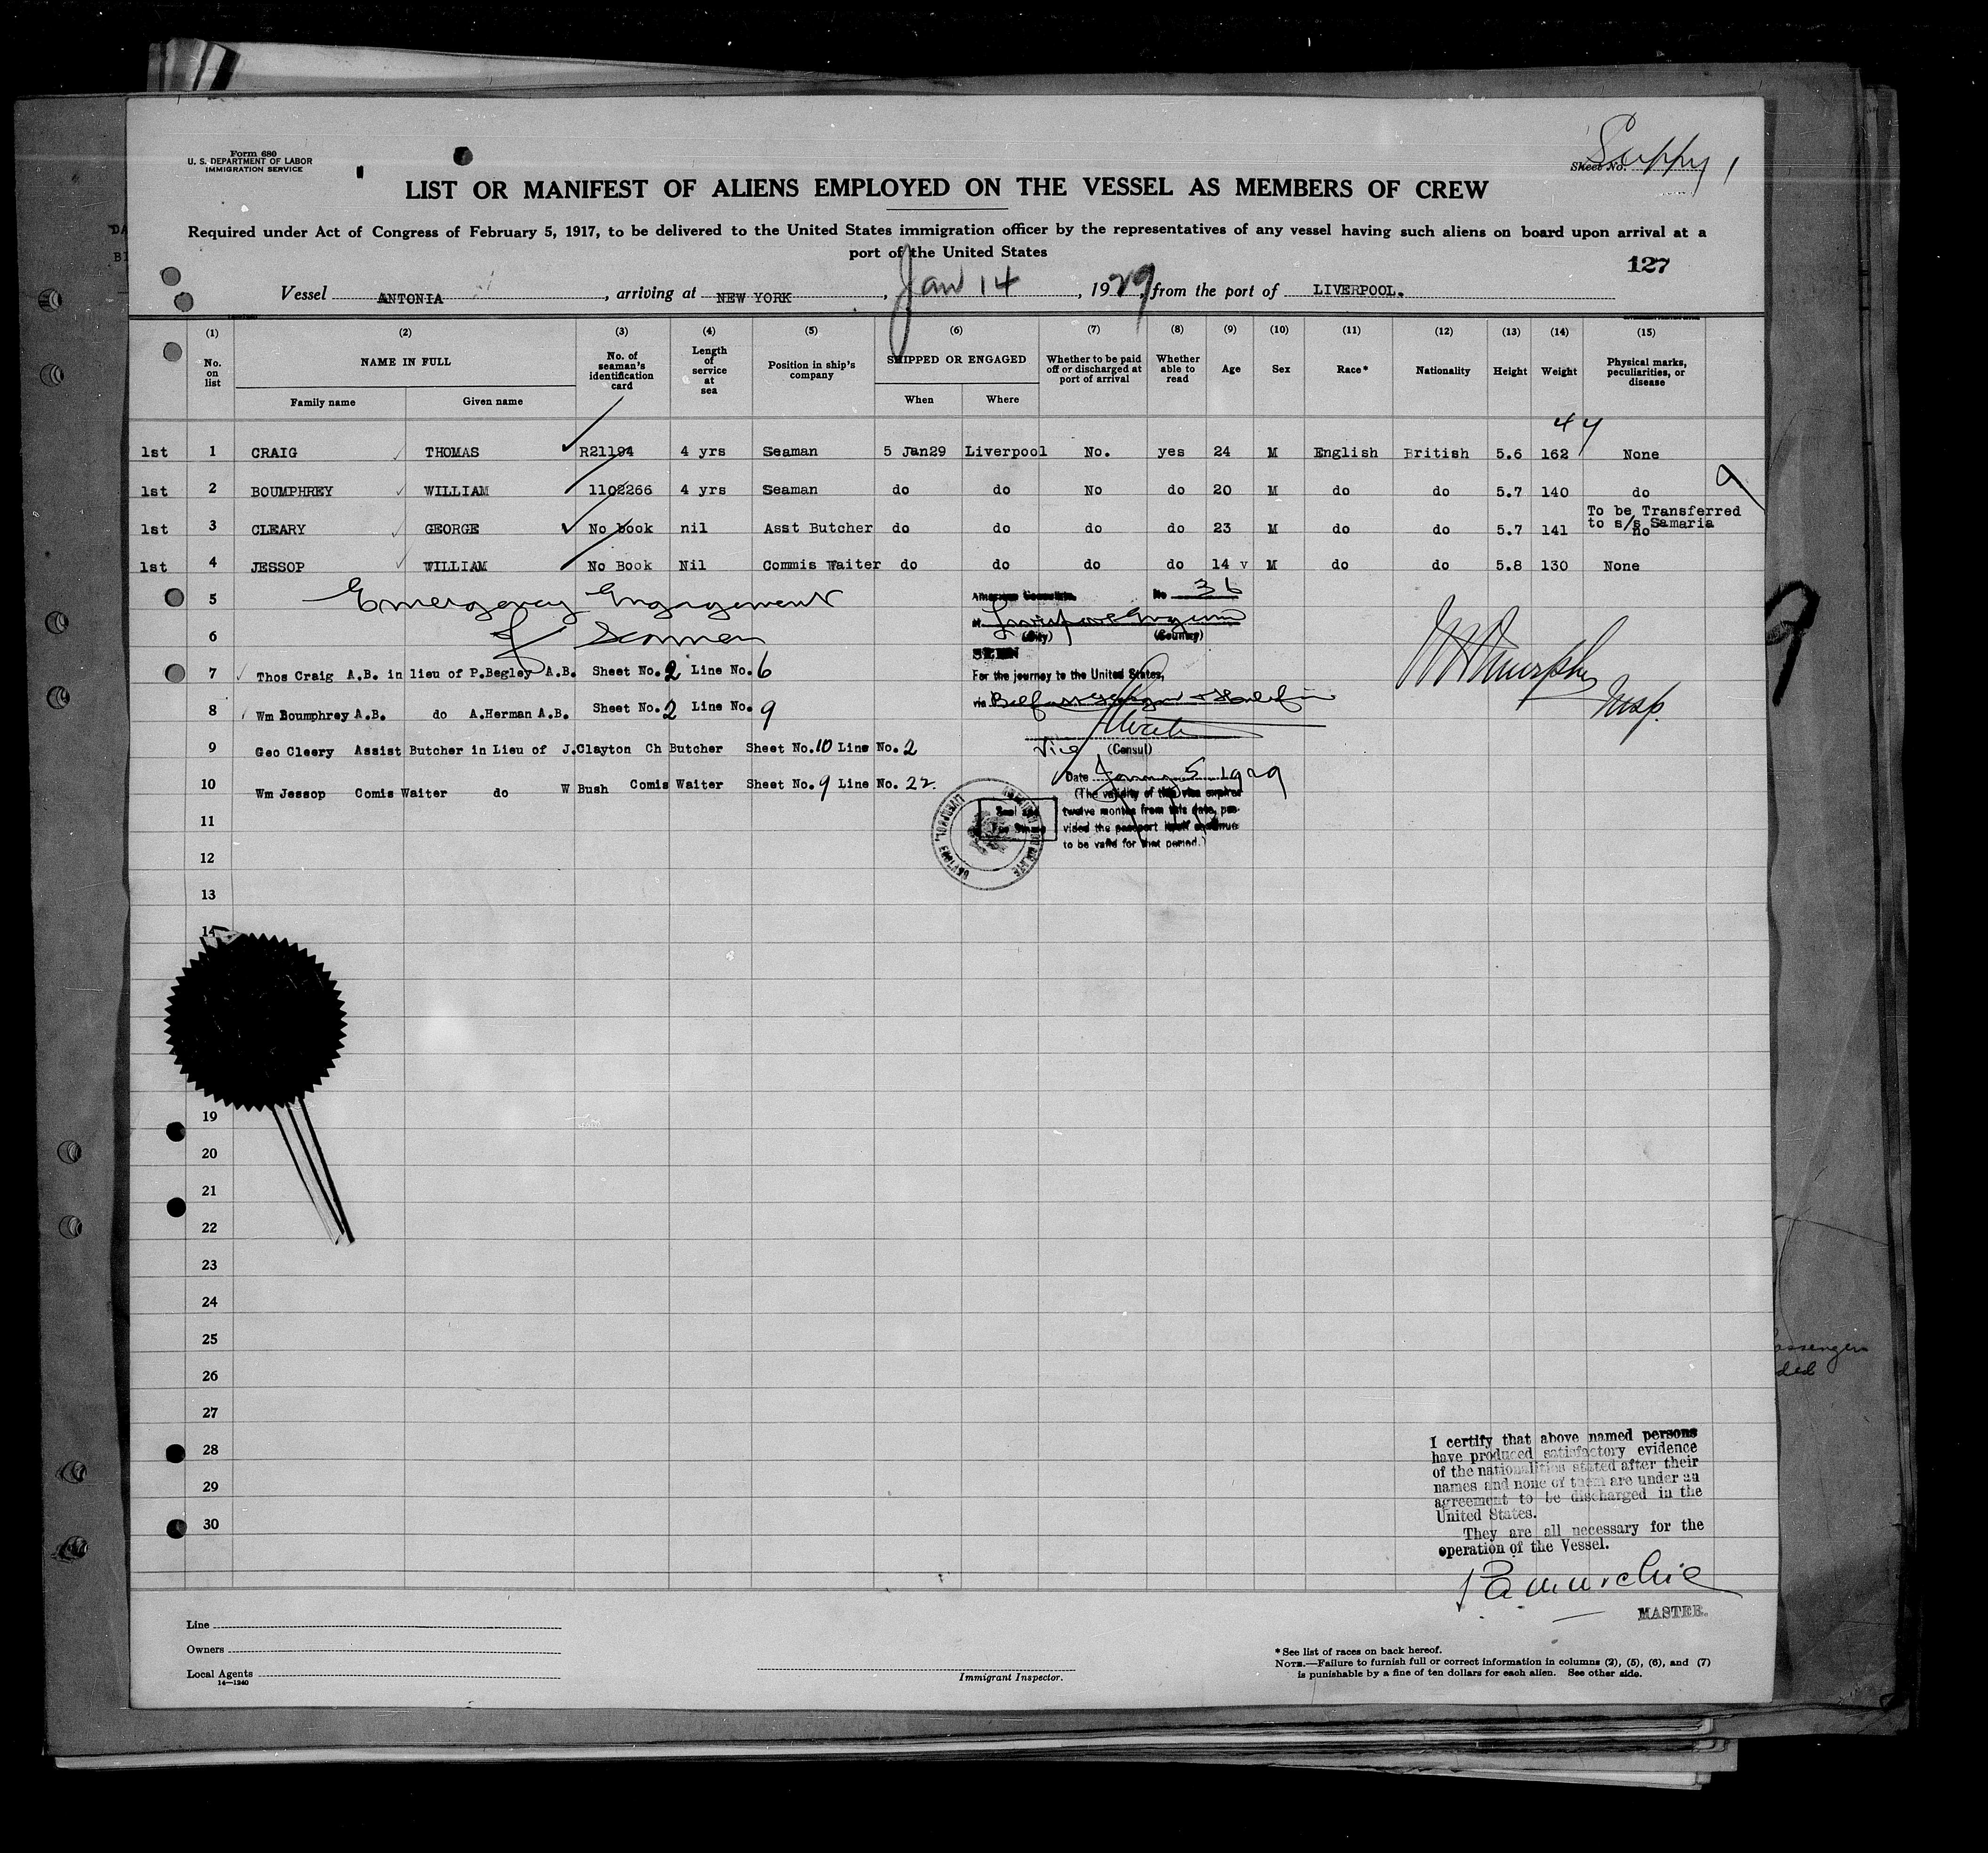 Form 680
U. S. DEPARTMENT OF LABOR
IMMIGRATION SERVICE
Sheet No. Supply 1
LIST OR MANIFEST OF ALIENS EMPLOYED ON THE VESSEL AS MEMBERS OF CREW
Required under Act of Congress of February 5, 1917, to be delivered to the United States immigration officer by the representatives of any vessel having such aliens on board upon arrival at a
port of the United States
127
Vessel ANTONIA, arriving at NEW YORK, Jan 14, 1929, from the port of LIVERPOOL.
(1) (2) (3) (4) (5) (6) (7) (8) (9) (10) (11) (12) (13) (14) (15)
No. on list NAME IN FULL No. of seaman's identification card Length of service at sea Position in ship's company SHIPPED OR ENGAGED Whether to be paid off or discharged at port of arrival Whether able to read Age Sex Race* Nationality Height Weight Physical marks, peculiarities, or disease
Family name Given name When Where
44
1st 1 CRAIG THOMAS R21194 4 yrs Seaman 5 Jan29 Liverpool No. yes 24 M English British 5.6 162 None
1st 2 BOUMPHREY WILLIAM 1102266 4 yrs Seaman do do No do 20 M do do 5.7 140 do
9
To be Transferred
to s/s Samaria
1st 3 CLEARY GEORGE No book nil Asst Butcher do do do do 23 M do do 5.7 141 no
1st 4 JESSOP WILLIAM No Book Nil Commis Waiter do do do do 14 v M do do 5.8 130 None
5 Emergency Engagement
American Consulate. No 36
6 of Seamen
(City) (Country)
SEEN
7 Thos Craig A.B. in lieu of P.Begley A.B. Sheet No. 2 Line No. 6
For the journey to the United States,
8 Wm Boumphrey A.B. do A.Herman A.B. Sheet No. 2 Line No. 9
via Belfast Glasgow + Halifax
W Murphy
Insp.
9 Geo Cleery Assist Butcher in Lieu of J.Clayton Ch Butcher Sheet No. 10 Line No. 2
Vice (Consul)
10 Wm Jessop Comis Waiter do W Bush Comis Waiter Sheet No. 9 Line No. 22.
Date 5 1929
(The validity of this visa expires
twelve months from this date, pro-
vided the passport itself continue
to be valid for that period.)
11
12
13
14
19
20
21
22
23
24
25
26
27
28
29
30
I certify that above named persons
have produced satisfactory evidence
of the nationalities stated after their
names and none of them are under an
agreement to be discharged in the
United States.
They are all necessary for the
operation of the Vessel.
MASTER.
Line
Owners
Local Agents
14—1240
Immigrant Inspector.
* See list of races on back hereof.
NOTE.—Failure to furnish full or correct information in columns (2), (5), (6), and (7)
is punishable by a fine of ten dollars for each alien. See other side.
9